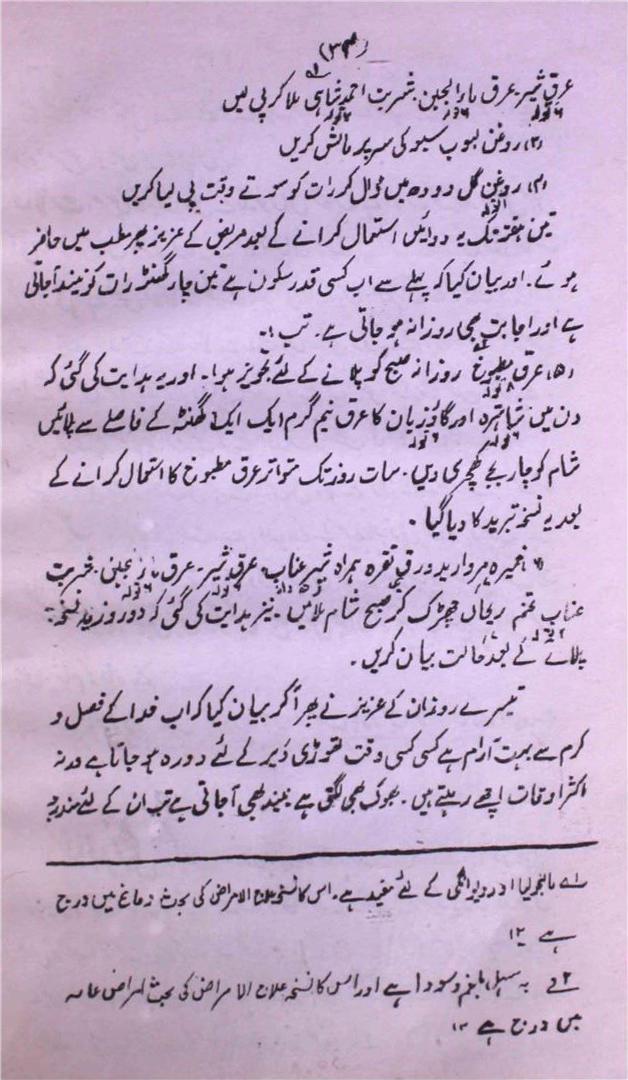 (۳۴)
عرق شیر۔ عرق ماء الجبن۔ شربت احمد شاہی ملا کر پی لیں
۶ تولہ ۶ تولہ ۲ تولہ
(۳) روغن لبوب سبو کی سر پر مالش کریں
(۴) روغن گل دودھ میں ڈال کر رات کو سوتے وقت پی لیا کریں
تین ہفتہ تک یہ دوائیں استعمال کرانے کے بعد مریض کے عزیز پھر مطب میں حاضر
ہوئے۔ اور بیان کیا کہ پہلے سے اب کسی قدر سکون ہے تین چار گھنٹہ رات کو نیند آجاتی
ہے اور اجابت بھی روزانہ ہو جاتی ہے۔ تب :۔
(۵) عرق مطبوخ روزانہ صبح کو پلانے کے لئے تجویز ہوا۔ اور یہ ہدایت کی گئی کہ
دن میں شاہترہ اور گاؤزبان کا عرق نیم گرم ایک ایک گھنٹہ کے فاصلے سے پلائیں
۶ تولہ ۶ تولہ
شام کو چار بجے کھچڑی دیں۔ سات روز تک متواتر عرق مطبوخ کا استعمال کرانے کے
بعد یہ نسخہ تبرید کا دیا گیا۔
۶ خمیرہ مروارید ورق نقرہ ہمراہ شیر عناب۔ عرق شیر۔ عرق ماء الجبن۔ شربت
۵ دانہ ۶ تولہ ۶ تولہ
عناب تخم ریحاں چھڑک کر صبح شام پلائیں۔ نیز ہدایت کی گئی کہ دو روز یہ نسخہ
۲ تولہ
پلانے کے بعد حالت بیان کریں۔
تیسرے روز ان کے عزیز نے پھر آکر بیان کیا کہ اب خدا کے فضل و
کرم سے بہت آرام ہے کسی کسی وقت تھوڑی دیر کے لئے دورہ ہو جاتا ہے ورنہ
اکثر اوقات اچھے رہتے ہیں۔ بھوک بھی لگتی ہے نیند بھی آجاتی ہے تب ان کے لئے مندرجہ
۱ے مالیخولیا اور دیوانگی کے لئے مفید ہے۔ اس کا نسخہ علاج الامراض کی بحث دماغ میں درج
ہے ۱۲
۲ے یہ مسہل بلغم و سودا ہے اور اس کا نسخہ علاج الامراض کی بحث امراض عامہ
میں درج ہے ۱۲